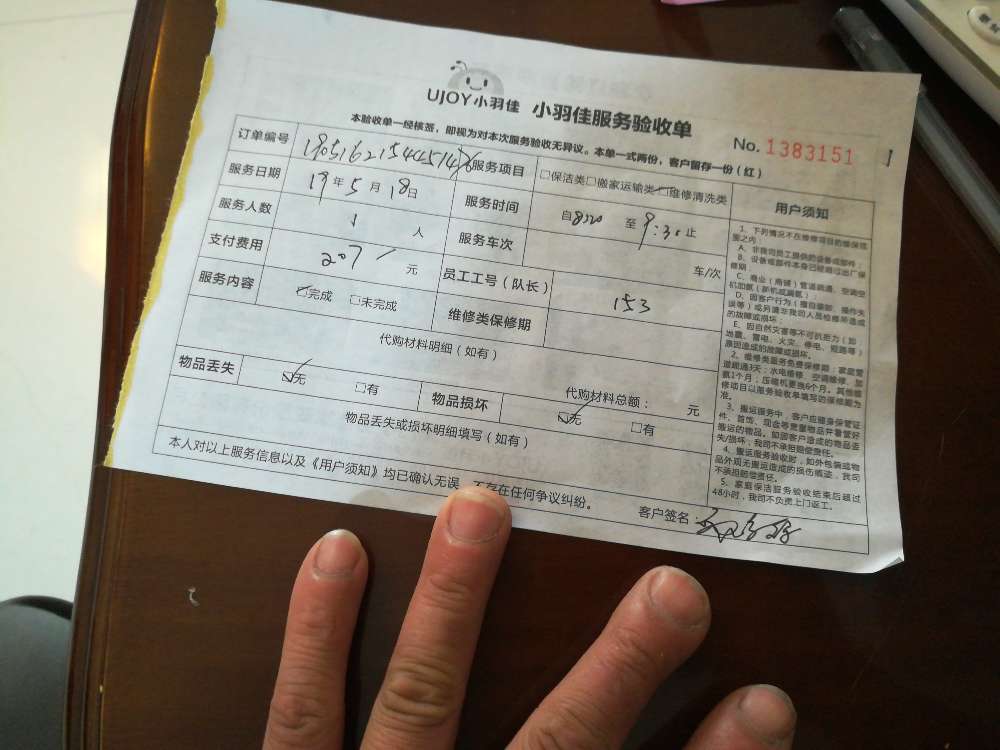 UJOY小羽佳 小羽佳服务验收单
本验收单一经核签，即视为对本次服务验收无异议。本单一式两份，客户留存一份（红）
No. 1383151
订单编号 服务项目 □保洁类□搬家运输类☑维修清洗类
服务日期 19年5月18日 服务时间 自8:20 至9:30止
服务人数 1 人 服务车次 车/次
支付费用 207 元 员工工号（队长） 153
服务内容 ☑完成 □未完成 维修类保修期
代购材料明细（如有）
代购材料总额： 元
物品丢失 ☑无 □有 物品损坏 ☑无 □有
物品丢失或损坏明细填写（如有）
本人对以上服务信息以及《用户须知》均已确认无误，不存在任何争议纠纷。
客户签名：
用户须知
1、下列情况不在维修项目的维保范
围之内：
A、非我司员工提供的设备或部件；
B、设备或部件本身已经超过出厂保
修期；
C、商业（商铺）管道疏通、空调空
机加氟（新机或漏氟）；
D、因客户行为（擅自装卸、操作失
误等）或另请非我司人员检修所造成
的故障或损坏；
E、因自然灾害等不可抗拒力（如
地震、雷电、火灾、停电、短路等）
原因造成的故障或损坏。
2、维修类服务免费保修期：家庭管
道疏通3天；水电维修、空调维修、加
氟1个月；压缩机更换6个月。其他维
修项目以服务验收单填写的保修期为
准。
3、搬运服务中，客户应随身保管证
件、首饰、现金等贵重物品并看管好
搬运的物品。如因客户造成的物品丢
失/损坏，我司不承担赔偿责任。
4、搬运服务验收时，如外包装或物
品外观无搬运造成的损伤痕迹，我司
不承担赔偿责任。
5、家庭保洁服务验收结束后超过
48小时，我司不负责上门返工。